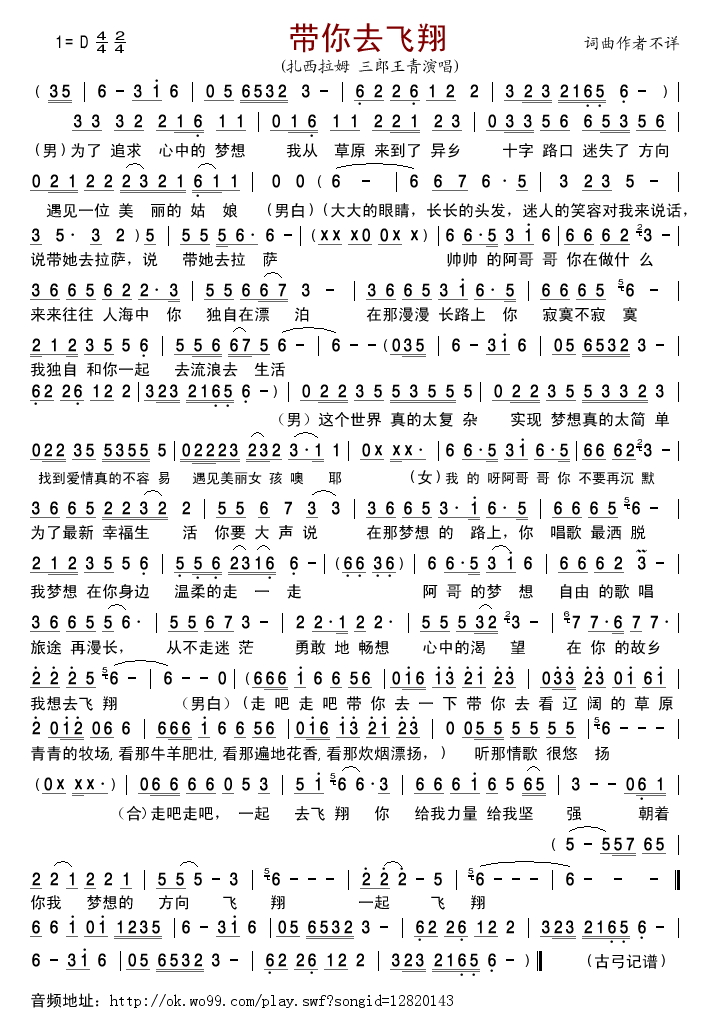 带你去飞翔
1= D 4/4 2/4
词曲作者不详
(扎西拉姆 三郎王青演唱)
( 35 | 6 - 3 1 6 | 0 5 6532 3 - | 6 2 2 6 1 2 2 | 3 2 3 2165 6 - ) |
3 3 3 2 2 1 6 1 1 | 0 1 6 1 1 2 2 1 2 3 | 0 3 3 5 6 6 5 3 5 6 |
(男)为了 追求 心中的 梦想 我从 草原 来到了 异乡 十字 路口 迷失了 方向
0 2 1 2 2 2 3 2 1 6 1 1 | 0 0 ( 6 - | 6 6 7 6 · 5 | 3 2 3 5 - |
遇见一位 美 丽的 姑 娘 (男白)(大大的眼睛, 长长的头发, 迷人的笑容对我来说话,
3 5 · 3 2 ) 5 | 5 5 5 6 · 6 - | (x x x0 0x x) | 6 6 · 5 3 1 6 | 6 6 6 2 2 3 - |
说带她去拉萨, 说 带她去拉 萨 帅帅 的阿哥 哥 你在做什 么
3 6 6 5 6 2 2 · 3 | 5 5 6 6 7 3 - | 3 6 6 5 3 1 6 · 5 | 6 6 6 5 5 6 - |
来来往往 人海中 你 独自在漂 泊 在那漫漫 长路上 你 寂寞不寂 寞
2 1 2 3 5 5 6 | 5 5 6 6 7 5 6 - | 6 - - (035 | 6 - 3 1 6 | 05 6532 3 - |
我独自 和你一起 去流浪去 生活
62 26 12 2 | 323 2165 6 - ) | 0 2 2 3 5 5 3 5 5 5 | 0 2 2 3 5 5 3 3 2 3 |
(男) 这个世界 真的太复 杂 实现 梦想真的太简 单
022 35 5355 5 | 02223 232 3 · 1 1 | 0x xx · | 6 6 · 5 31 6 · 5 | 66 62 2 3 - |
找到爱情真的不容 易 遇见美丽女 孩 噢 耶 (女)我 的 呀阿哥 哥 你 不要再沉 默
3 6 6 5 2 2 3 2 2 | 5 5 6 7 3 3 | 3 6 6 5 3 · 1 6 | 6 6 6 5 5 6 - |
为了最新 幸福生 活 你要 大 声 说 在那梦想 的 路上, 你 唱歌 最洒 脱
2 1 2 3 5 5 6 | 5 5 6 2316 6 - | (66 36) | 6 6 · 5 3 1 6 | 6 6 6 2 3 - |
我梦想 在你身边 温柔的走 一 走 阿 哥 的梦 想 自由 的歌 唱
3 6 6 5 5 6 · | 5 5 6 7 3 - | 2 2 · 1 2 2 · | 5 5 5 32 2 3 - | 6 7 7 · 6 7 7 · |
旅途 再漫长, 从不走迷 茫 勇敢 地 畅想 心中的渴 望 在 你 的故乡
2 2 2 5 5 6 - | 6 - - 0 | (666 1 6 6 56 | 016 13 21 23 | 033 23 01 61 |
我想去飞 翔 (男白) (走 吧 走 吧 带 你 去 一 下 带 你 去 看 辽 阔 的 草 原
2 012 06 6 | 666 1 66 56 | 016 13 21 23 | 0 05 5 5 5 5 5 | 5 6 - - - |
青青的牧场, 看那牛羊肥壮, 看那遍地花香, 看那炊烟漂扬, ) 听那情歌 很悠 扬
(0x xx · ) | 06 6 6 6 0 5 3 | 5 1 5 6 6 · 3 | 6 6 6 1 6 5 65 | 3 - - 06 1 |
(合)走吧走吧, 一起 去飞 翔 你 给我力量 给我坚 强 朝着
( 5 - 557 65 |
2 2 1 2 2 1 | 5 5 5 - 3 | 5 6 - - - | 2 2 2 - 5 | 5 6 - - - | 6 - - - ‖
你我 梦想的 方向 飞 翔 一起 飞 翔
6 6 1 01 1235 | 6 - 31 6 | 05 6532 3 - | 62 26 12 2 | 323 2165 6 - |
6 - 31 6 | 05 6532 3 - | 62 26 12 2 | 323 2165 6 - ) ‖ (古弓记谱)
音频地址: http://ok.wo99.com/play.swf?songid=12820143